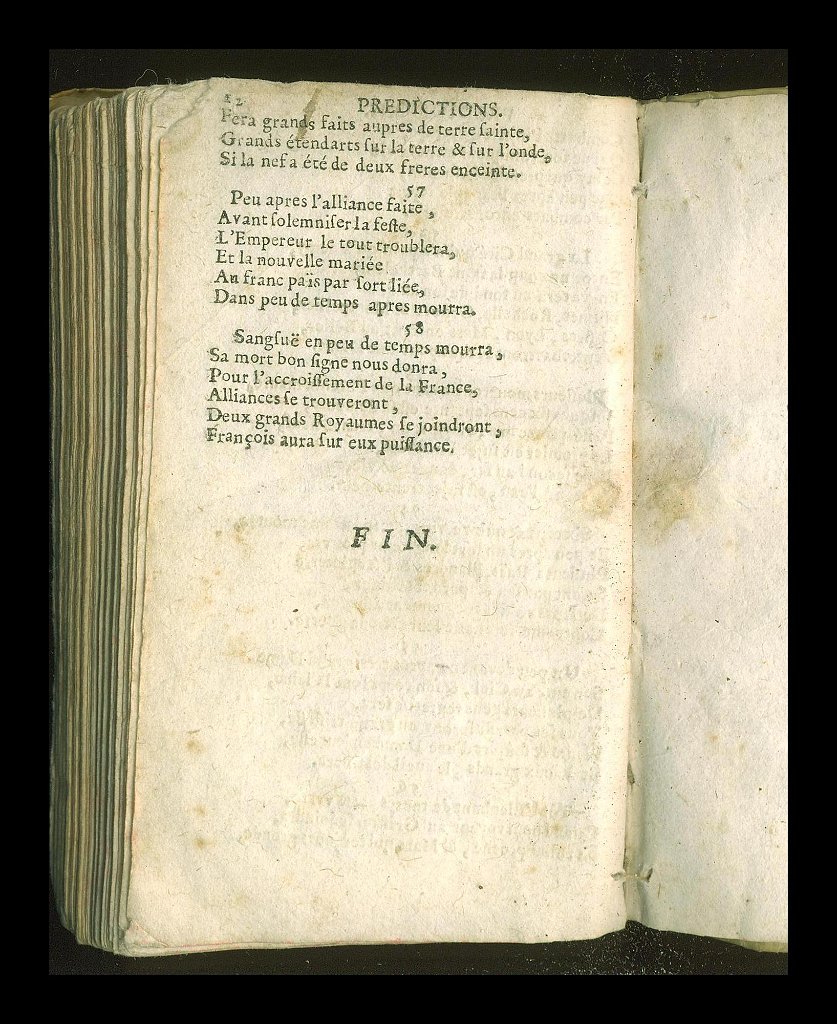 12 PREDICTIONS.
Fera grands faits aupres de terre ſainte,
Grands étendarts ſur la terre & ſur l'onde,
Si la nef a été de deux freres enceinte.
57
Peu apres l'alliance faite,
Avant ſolemniſer la feſte,
L'Empereur le tout troublera,
Et la nouvelle mariée
Au franc païs par ſort liée,
Dans peu de temps apres mourra.
58
Sangſuë en peu de temps mourra,
Sa mort bon ſigne nous donra,
Pour l'accroiſſement de la France,
Alliances ſe trouveront,
Deux grands Royaumes ſe joindront,
François aura ſur eux puiſſance.
FIN.